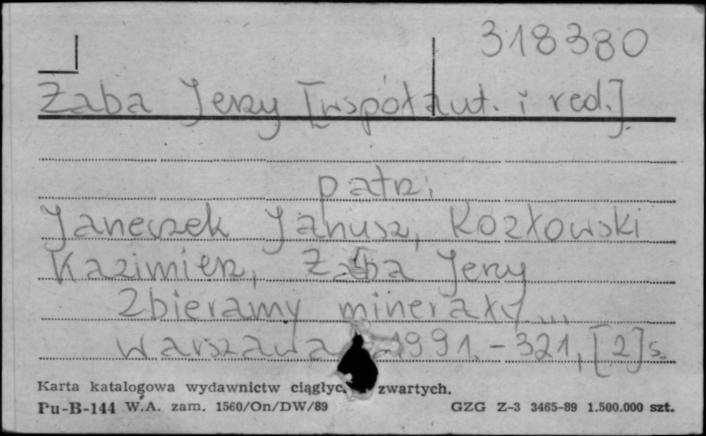 318380
Żaba Jerzy [współaut. i red.]
patrz:
Janeczek Janusz, Kozłowski
Kazimierz, Żaba Jerzy
Zbieramy minerały...
Warszawa 1991. - 321, [2] s.
Karta katalogowa wydawnictw ciągłyc. zwartych.
Pu-B-144 W.A. zam. 1560/On/DW/89 GZG Z-3 3465-89 1.500.000 szt.